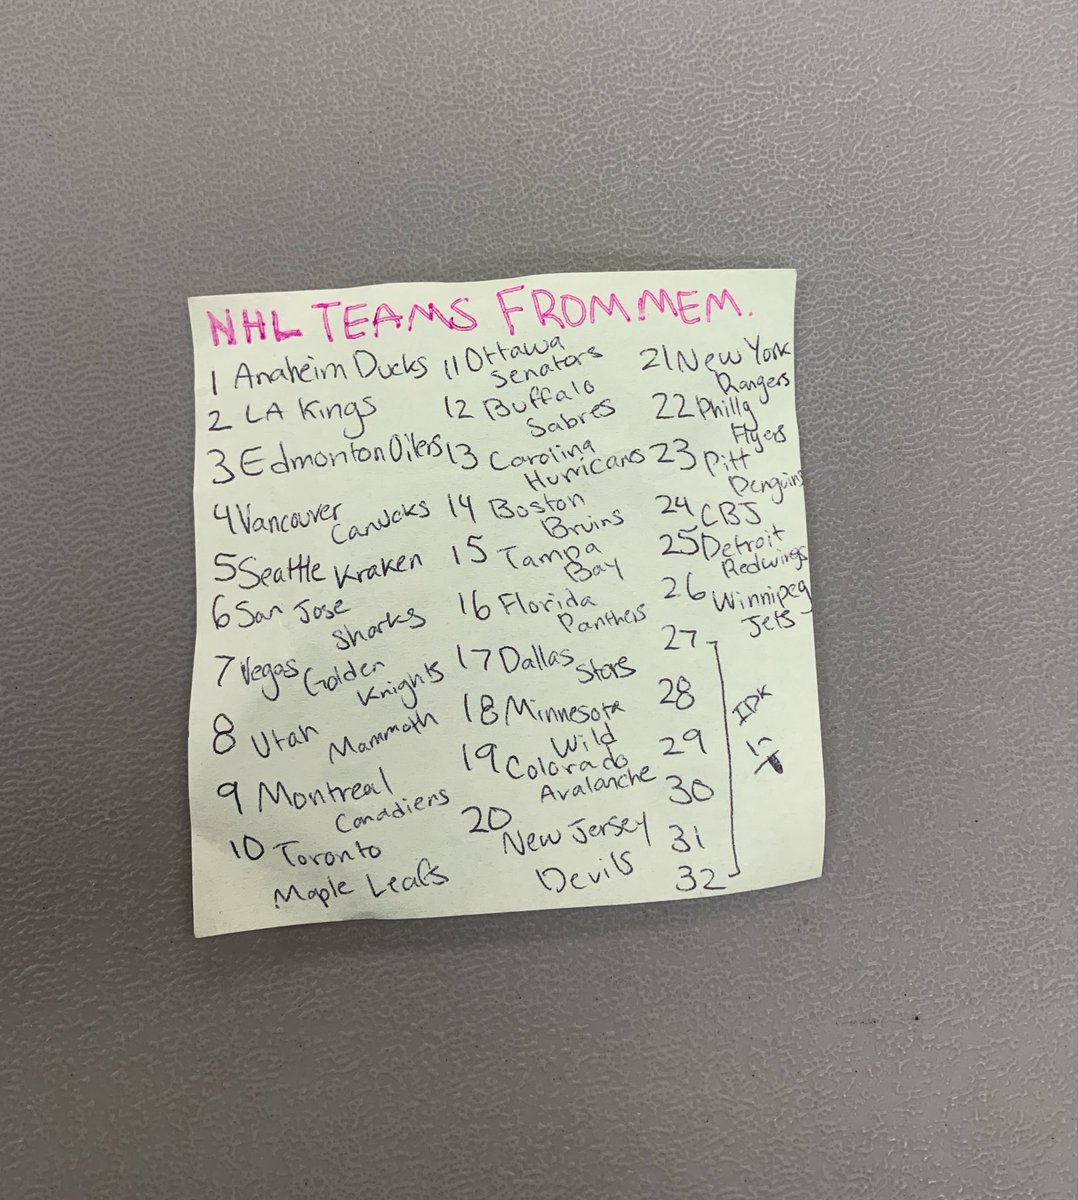 NHL TEAMS FROM MEM.
1 Anaheim Ducks
2 LA Kings
3 Edmonton Oilers
4 Vancouver
Canucks
5 Seattle Kraken
6 San Jose
Sharks
7 Vegas Golden
Knights
8 Utah Mammoth
9 Montreal
Canadiens
10 Toronto
Maple Leafs
11 Ottawa
Senators
12 Buffalo
Sabres
13 Carolina
Hurricans
14 Boston
Bruins
15 Tampa
Bay
16 Florida
Panthers
17 Dallas
Stars
18 Minnesota
Wild
19 Colorado
Avalanche
20
New Jersey
Devils
21 New York
Rangers
22 Philly
Flyers
23 Pitt
Penguins
24 CBJ
25 Detroit
Redwings
26 Winnipeg
Jets
27
28
29
30
31
32
IDK